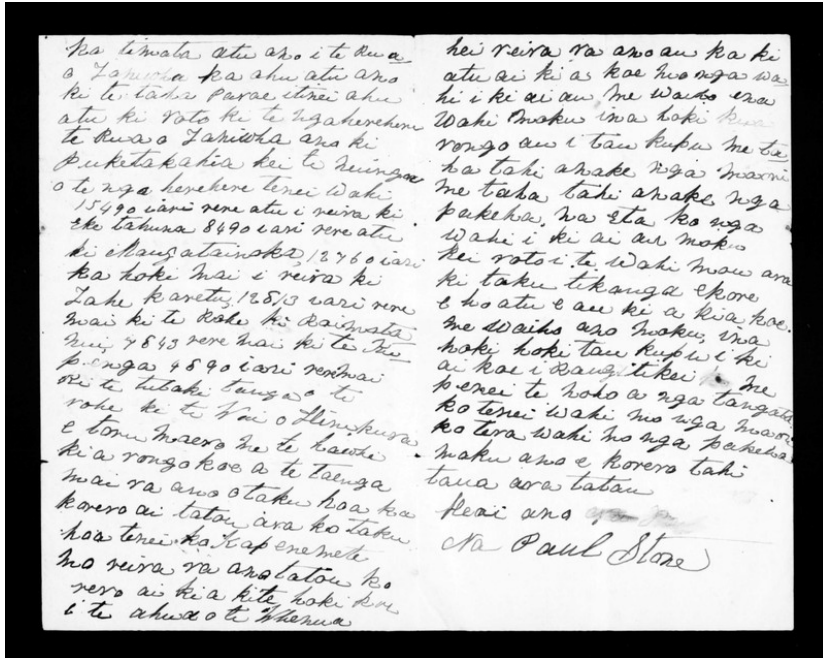 ka timata atu ano i te Rua
o Taniwha ka ahu atu ano
ki te taha Parae itinei ahu
atu ki roto ki te ngaherehere
te Rua o Taniwha ano ki
puketakahia kei te
o te nga herehere tenei wahi
15490 iari rere atu i reira ki
Eke tahuna 8490 iari rere atu
ki Maungatainoka, 12760 iari
ka hoki mai i reira ki
Tahe karetu, 12813 iari rere
mai ki te Rohe ki Raimata
nui, 7843 rere mai ki te
4890 iari rere mai
ki te tutaki tanga o te
rohe ki te Wai o Hinekura
e toru maero me te hawhe
kia rongo koe a te taenga
mai ra ano o taku hoa ka
korero ai tatou ara ko taku
hoa tenei ko Kapenemete
mo reira ra ano tatou ko
rero ai kia kite hoki koe
i te ahua o te Whenua
hei reira ra ano au ka ki
atu ai ki a koe mo nga wa
hi i ki ai au me waiho ena
wahi moku ina hoki kua
rongo au i tau kupu me ta
ha tahi anake nga maori
me taha tahi anake nga
pakeha, na Eta ko nga
wahi i ki ai au moku
kei roto i te wahi mou ara
ki taku tikanga ekore
e hoatu e au ki a kia koe
me waiho ano moku, ina
hoki hoki tau kupu i ki
ai koe i Rangitikei me
penei te noho a nga tangata,
ko tenei wahi mo nga maori
ko tera wahi mo nga pakeha
maku ano e korero tahi
taua ara tatou
Heoi ano
Na Paul Stone